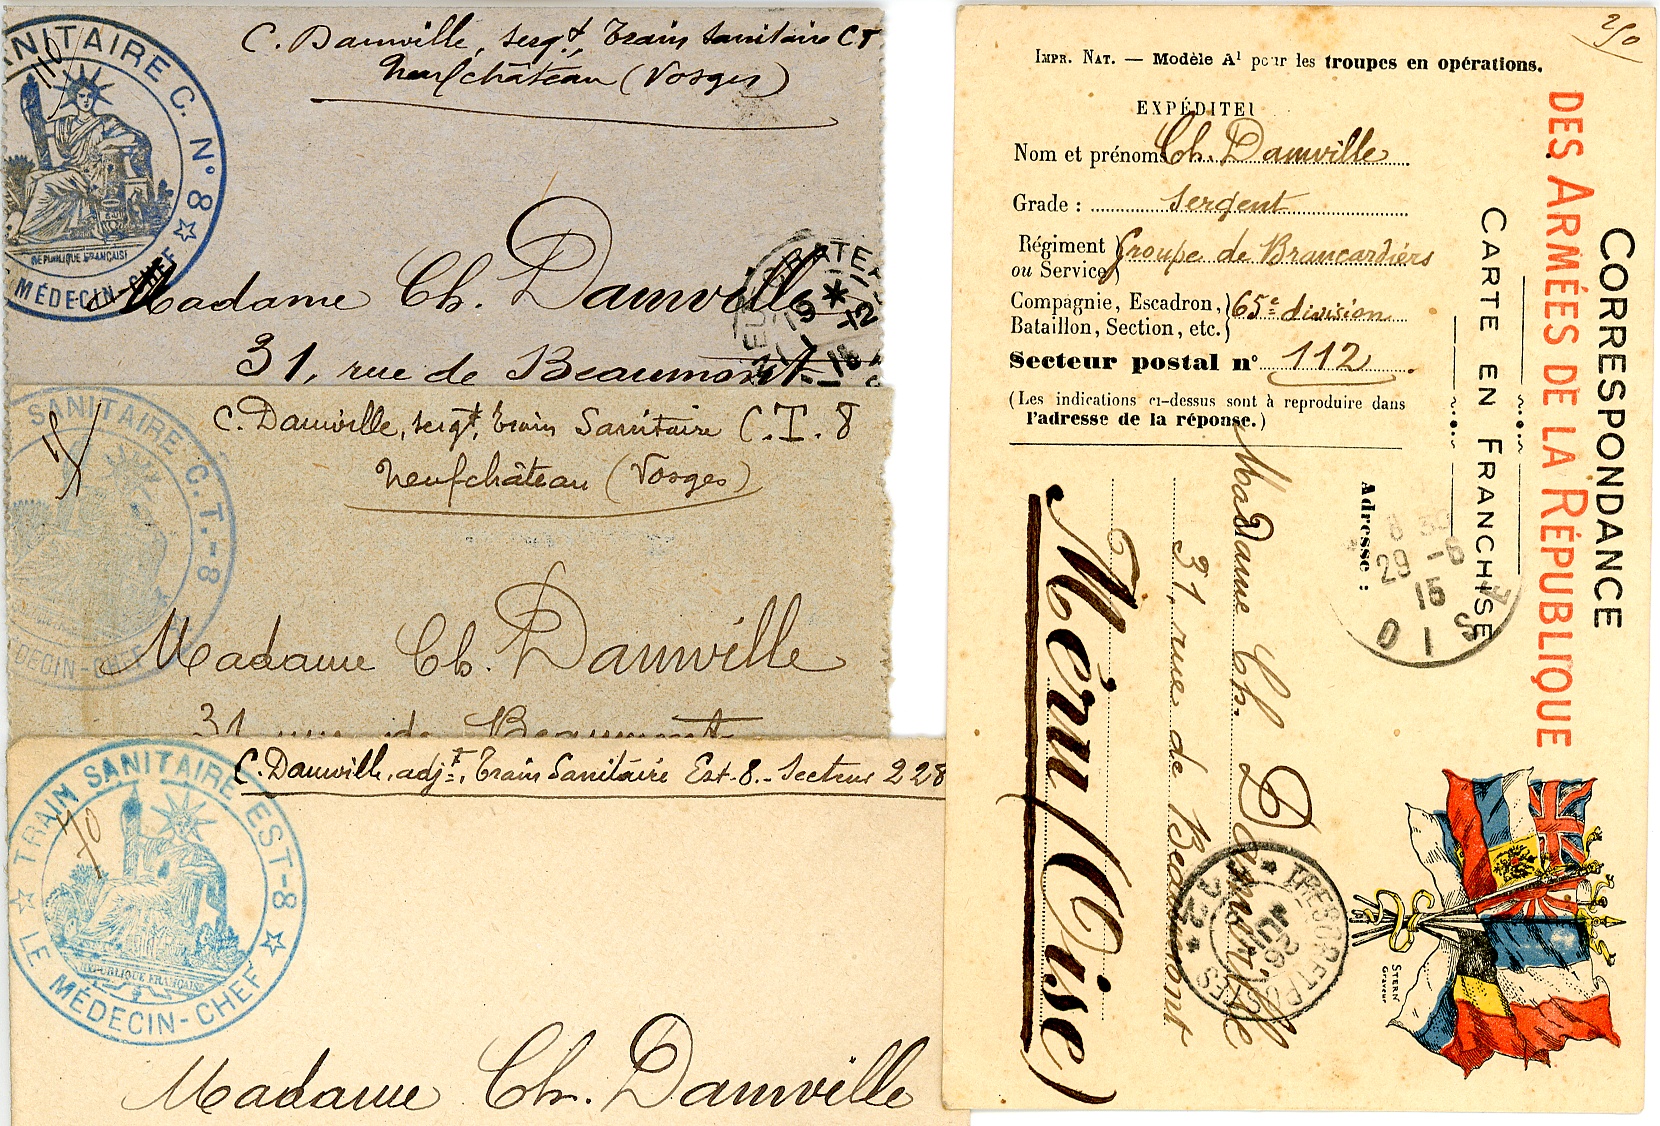 SANITAIRE C. N° 8
MÉDECIN-CHEF
RÉPUBLIQUE FRANÇAISE
110
C. Damville, sergt, Train Sanitaire C T
Neufchâteau (Vosges)
Madame Ch. Damville
31, rue de Beaumont
19 * 12
15
SANITAIRE C.T.-8
MÉDECIN-CHEF
C. Damville, sergt, Train Sanitaire C.T. 8
Neufchâteau (Vosges)
Madame Ch. Damville
31 rue de Beaumont
TRAIN SANITAIRE EST-8
LE MÉDECIN-CHEF
RÉPUBLIQUE FRANÇAISE
70
C. Damville, adjt, Train Sanitaire Est-8. - Secteur 228
Madame Ch. Damville
IMPR. NAT. — Modèle A¹ pour les troupes en opérations.
EXPÉDITEU
Nom et prénoms Ch. Damville
Grade : sergent
Régiment ou Service } Groupe de Brancardiers
Compagnie, Escadron, Bataillon, Section, etc. } 65e division
Secteur postal n° 112
(Les indications ci-dessus sont à reproduire dans
l'adresse de la réponse.)
CORRESPONDANCE
DES ARMÉES DE LA RÉPUBLIQUE
CARTE EN FRANCHISE
Adresse :
Madame Ch. Damville
31, rue de Beaumont
Méru (Oise)
29 -6
15
OISE
TRESOR ET POSTES
STERN
Graveur